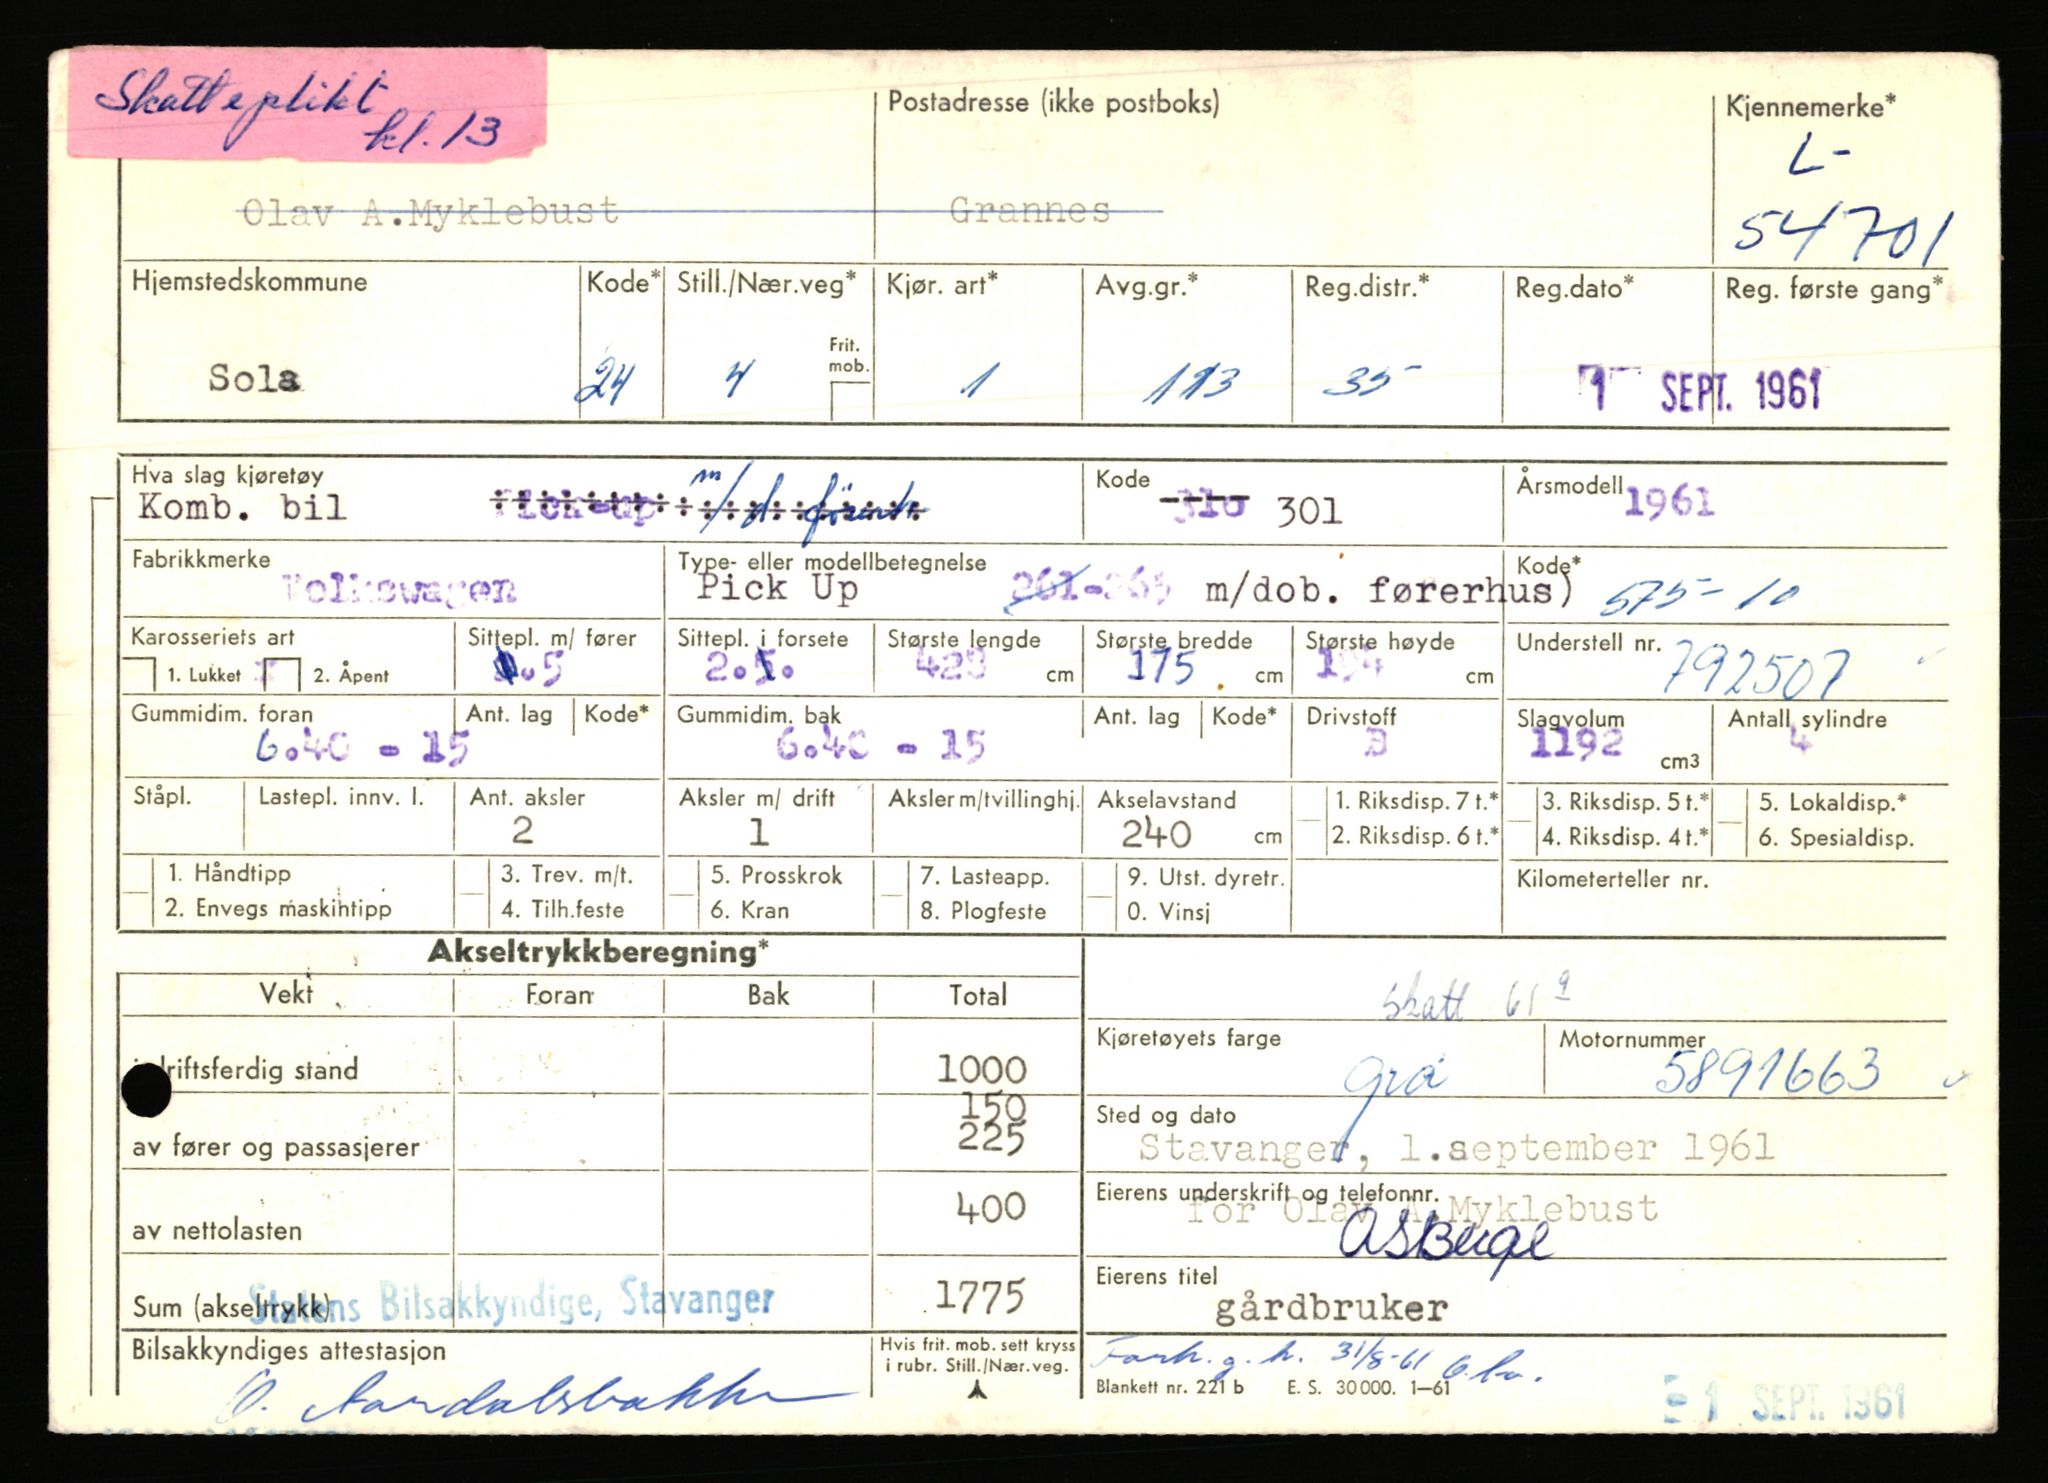 Skatteplikt
kl. 13
Postadresse (ikke postboks)
Kjennemerke*
L-
54701
Olav A.Myklebust
Grannes
Hjemstedskommune
Kode*
Still./Nær.veg*
Kjør. art*
Avg.gr.*
Reg.distr.*
Reg.dato*
Reg. første gang*
Sola
24
4
Frit.
mob.
1
113
35
1 SEPT. 1961
Hva slag kjøretøy
Komb. bil
Pick-up
m/d. förerh.
Kode
310 301
Årsmodell
1961
Fabrikkmerke
Volkswagen
Type- eller modellbetegnelse
Pick Up 261-265 m/dob. førerhus)
Kode*
575-10
Karosseriets art
1. Lukket
2. Åpent
Sittepl. m/ fører
.5
Sittepl. i forsete
2.
Største lengde
428 cm
Største bredde
175 cm
Største høyde
194 cm
Understell nr.
792507
Gummidim. foran
6.40 - 15
Ant. lag
Kode*
Gummidim. bak
6.40 - 15
Ant. lag
Kode*
Drivstoff
B
Slagvolum
1192 cm3
Antall sylindre
4
Ståpl.
Lastepl. innv. l.
Ant. aksler
2
Aksler m/ drift
1
Aksler m/tvillinghj.
Akselavstand
240 cm
1. Riksdisp. 7 t.*
2. Riksdisp. 6 t.*
3. Riksdisp. 5 t.*
4. Riksdisp. 4 t.*
5. Lokaldisp.*
6. Spesialdisp.
1. Håndtipp
2. Envegs maskintipp
3. Trev. m/t.
4. Tilh.feste
5. Prosskrok
6. Kran
7. Lasteapp.
8. Plogfeste
9. Utst. dyretr.
0. Vinsj
Kilometerteller nr.
Akseltrykkberegning*
Vekt
Foran
Bak
Total
driftsferdig stand
1000
150
av fører og passasjerer
225
av nettolasten
400
Sum (akseltrykk)
1775
Statens Bilsakkyndige, Stavanger
Bilsakkyndiges attestasjon
Hvis frit. mob. sett kryss
i rubr. Still./Nær.veg.
Skatt 61
Kjøretøyets farge
Grå
Motornummer
5891663
Sted og dato
Stavanger, 1.september 1961
Eierens underskrift og telefonnr.
for Olav A.Myklebust
Eierens titel
gårdbruker
Forh. g. h. 31/8-61
Blankett nr. 221 b E. S. 30000. 1—61
1 SEPT. 1961